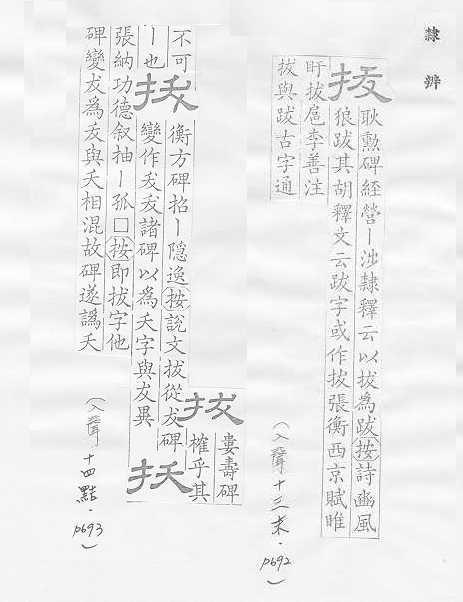 隸辨
拔
耿勳碑經營丨涉隸釋云以拔為跋按詩豳風
狼跋其胡釋文云跋字或作拔張衡西京賦睢
盱拔扈李善注
拔與跋古字通
(入聲十三末·p692)
拔
婁壽碑
榷乎其
不可
丨也
拔
衡方碑招丨隱逸按說文拔從犮碑
變作犮叐諸碑以為夭字與友異
扷
張納功德叙抽丨孤□按即拔字他
碑變犮為叐與夭相混故碑遂譌夭
(入聲十四黠·p693)